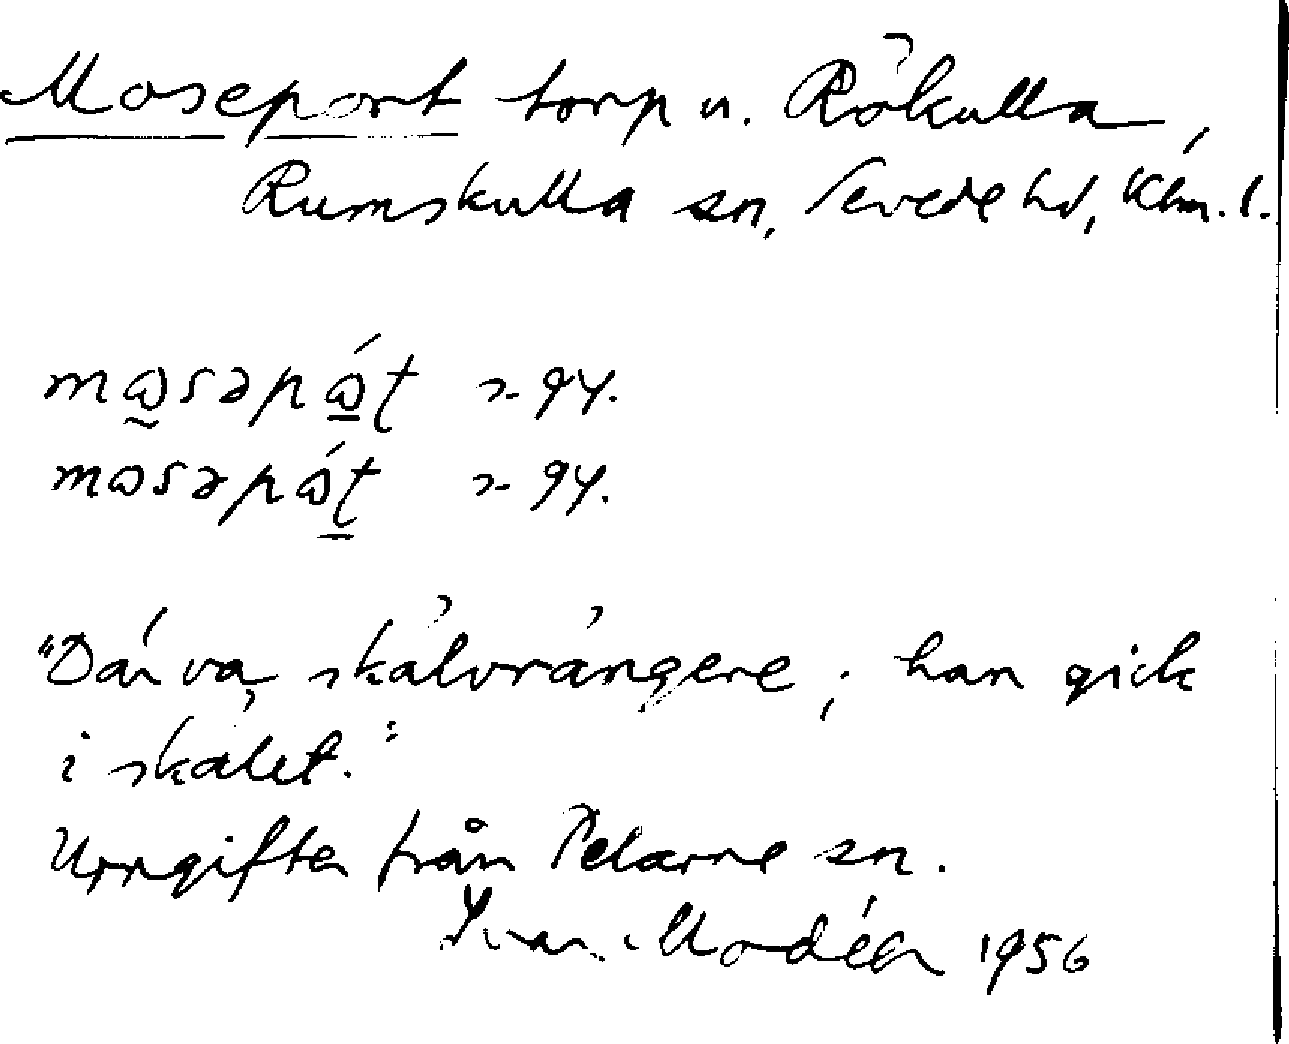 Moseport torp u. Rökulla,
Rumskulla sn, Sevede hd, Klm. l.
mɷsəpɷ́ʈ 2-94.
mɷsəpɷ́ʈ 2-94.
"Där va skålvrängere; han gick
i skålet."
Uppgifter från Pelarne sn.
Ivar Modéer 1956